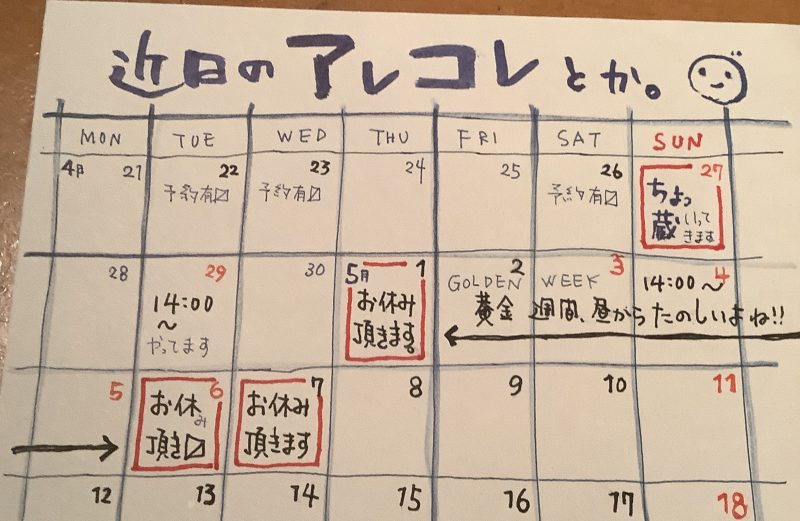 近日のアレコレとか。
MON TUE WED THU FRI SAT SUN
4月 21 22 23 24 25 26 27
予約有〼 予約有〼 予約有〼 ちょっ
蔵いって
きます
28 29 30 5月 1 2 3 4
GOLDEN WEEK 14:00〜
14:00
〜
やってます
お休み
頂きます。
黄金週間、昼からたのしいよね!!
5 6 7 8 9 10 11
お休み
頂き〼
お休み
頂きます
12 13 14 15 16 17 18